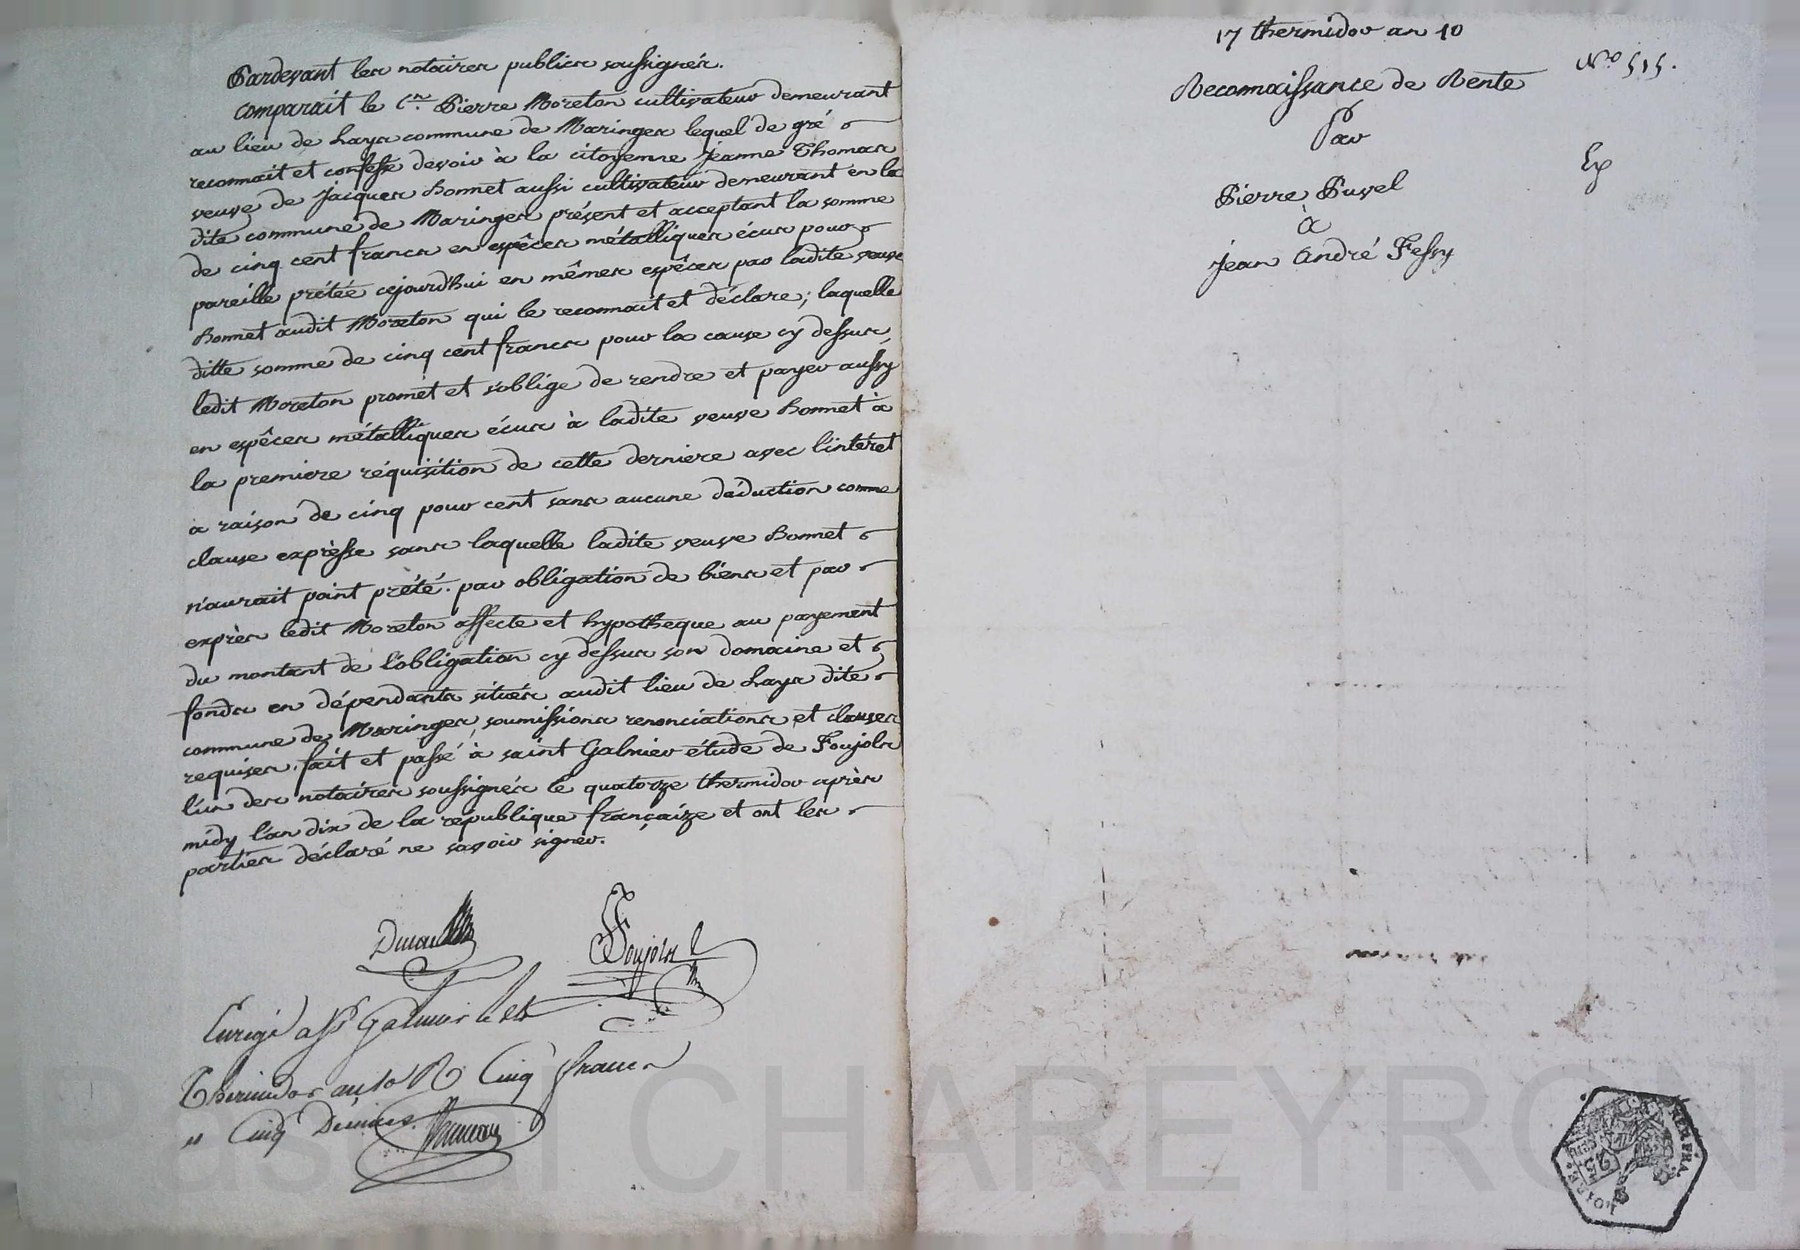 Pardevant les notaires publics soussignés.
Comparait le Cen. Pierre Moreton cultivateur demeurant
au lieu de Lays commune de Maringes lequel de gré
reconnait et confesse devoir à la citoyenne Jeanne Thomas
veuve de Jacques Bonnet aussi cultivateur demeurant en la
dite commune de Maringes présent et acceptant la somme
de cinq cent francs en espèces métalliques écus pour
pareille prétée cejourd'hui en mêmes espèces par ladite veuve
Bonnet audit Moreton qui le reconnait et déclare; laquelle
ditte somme de cinq cent francs pour la cause cy dessus,
ledit Moreton promet et s'oblige de rendre et payer aussy
en espèces métalliques écus à ladite veuve Bonnet à
la premiere réquisition de cette derniere avec l'intéret
à raison de cinq pour cent sans aucune déduction comme
clause expresse sans laquelle ladite veuve Bonnet
n'aurait point prété. par obligation de biens et par
exprès ledit Moreton affecte et hypotheque au payement
du montant de l'obligation cy dessus son domaine et
fonds en dépendants situés audit lieu de Lays dite
commune de Maringes, soumissions renonciations et clauses
requises. fait et passé à saint Galmier étude de Foujols
l'un des notaires soussignés le quatorze thermidor après
midy l'an dix de la république françaize et ont les
parties déclaré ne savoir signer.
Foujols
Enrigé a St Galmier le
Thermidor an 10 R Cinq francs
Cinq Decimes
17 thermidor an 10
No 515.
Reconnaissance de Rente
Par
Pierre Puvel
à
Jean André Fessy
Ex
CHAREYRON